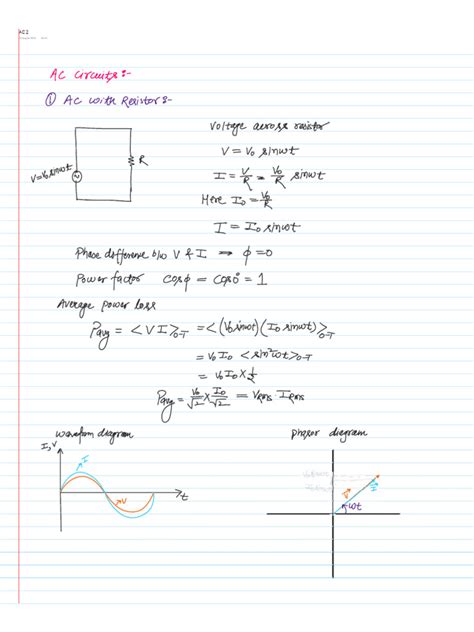 AC 2
AC Circuits:-
① AC with Resistor:-
Voltage across resistor
V = V₀ sinωt
R
V=V₀ sinωt
I = V/R = V₀/R sinωt
Here I₀ = V₀/R
I = I₀ sinωt
Phase difference b/w V & I → ϕ=0
Power factor cosϕ = cos0° = 1
Average power loss
Pavg = <VI>₀₋T = <(V₀ sinωt)(I₀ sinωt)>₀₋T
= V₀I₀ <sin²ωt>₀₋T
= V₀I₀ × 1/2
Pavg = V₀/√2 × I₀/√2 = VRMS · IRMS
waveform diagram
phasor diagram
I, V
I
V
t
V
I
ωt